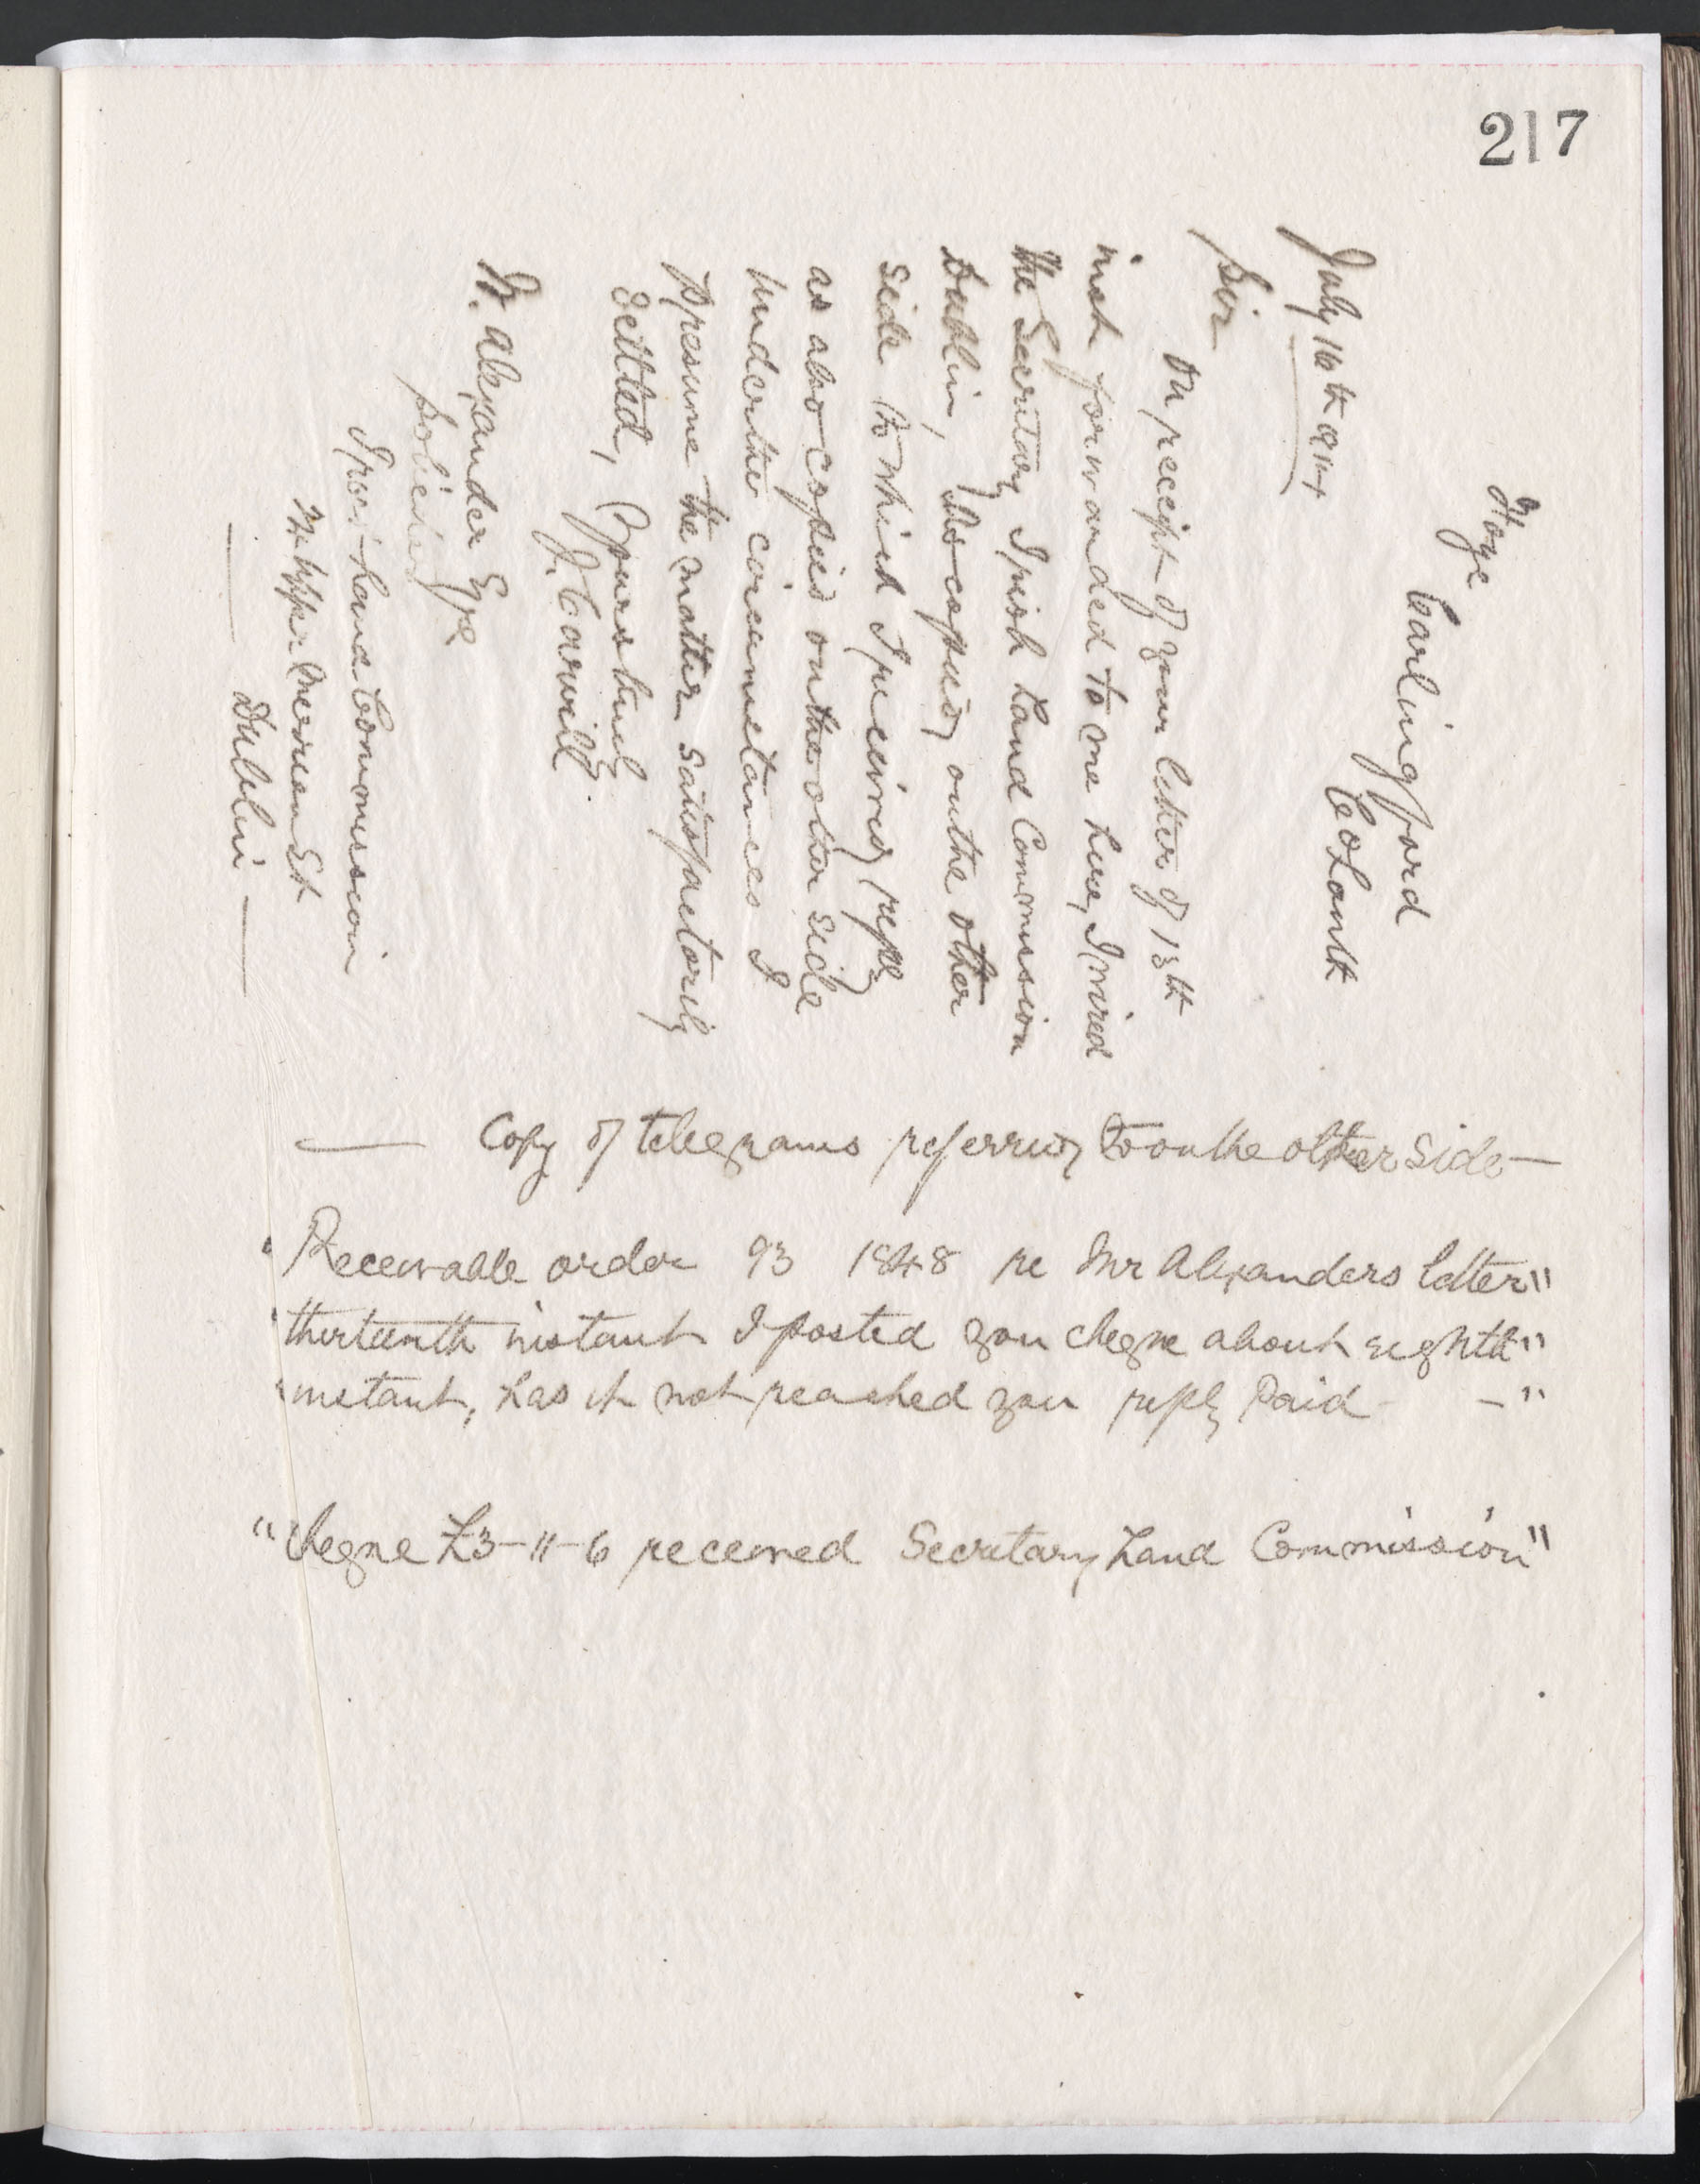 217
Hoye
Carlingford
Co Louth
July 16th 1914
Sir
On receipt of your letter of 13th
inst forwarded to me here, I wired
the Secretary Irish Land Commission
Dublin, As copied, on the other
side to which I received reply
as also copied on the other side
Under the circumstances I
presume the matter satisfactorily
Settled, Yours truly
J. Carvill
W. Alexander Esqe
Solicitor
Irish Land Commission
Upper Merrion St
Dublin
Copy of telegrams referred to on the other side
"Receivable order 93 1848 re Mr Alexanders letter"
"thirteenth instant I posted you cheque about eighth"
"instant, has it not reached you reply Paid - "
"Cheque £3-11-6 received Secretary Land Commission"